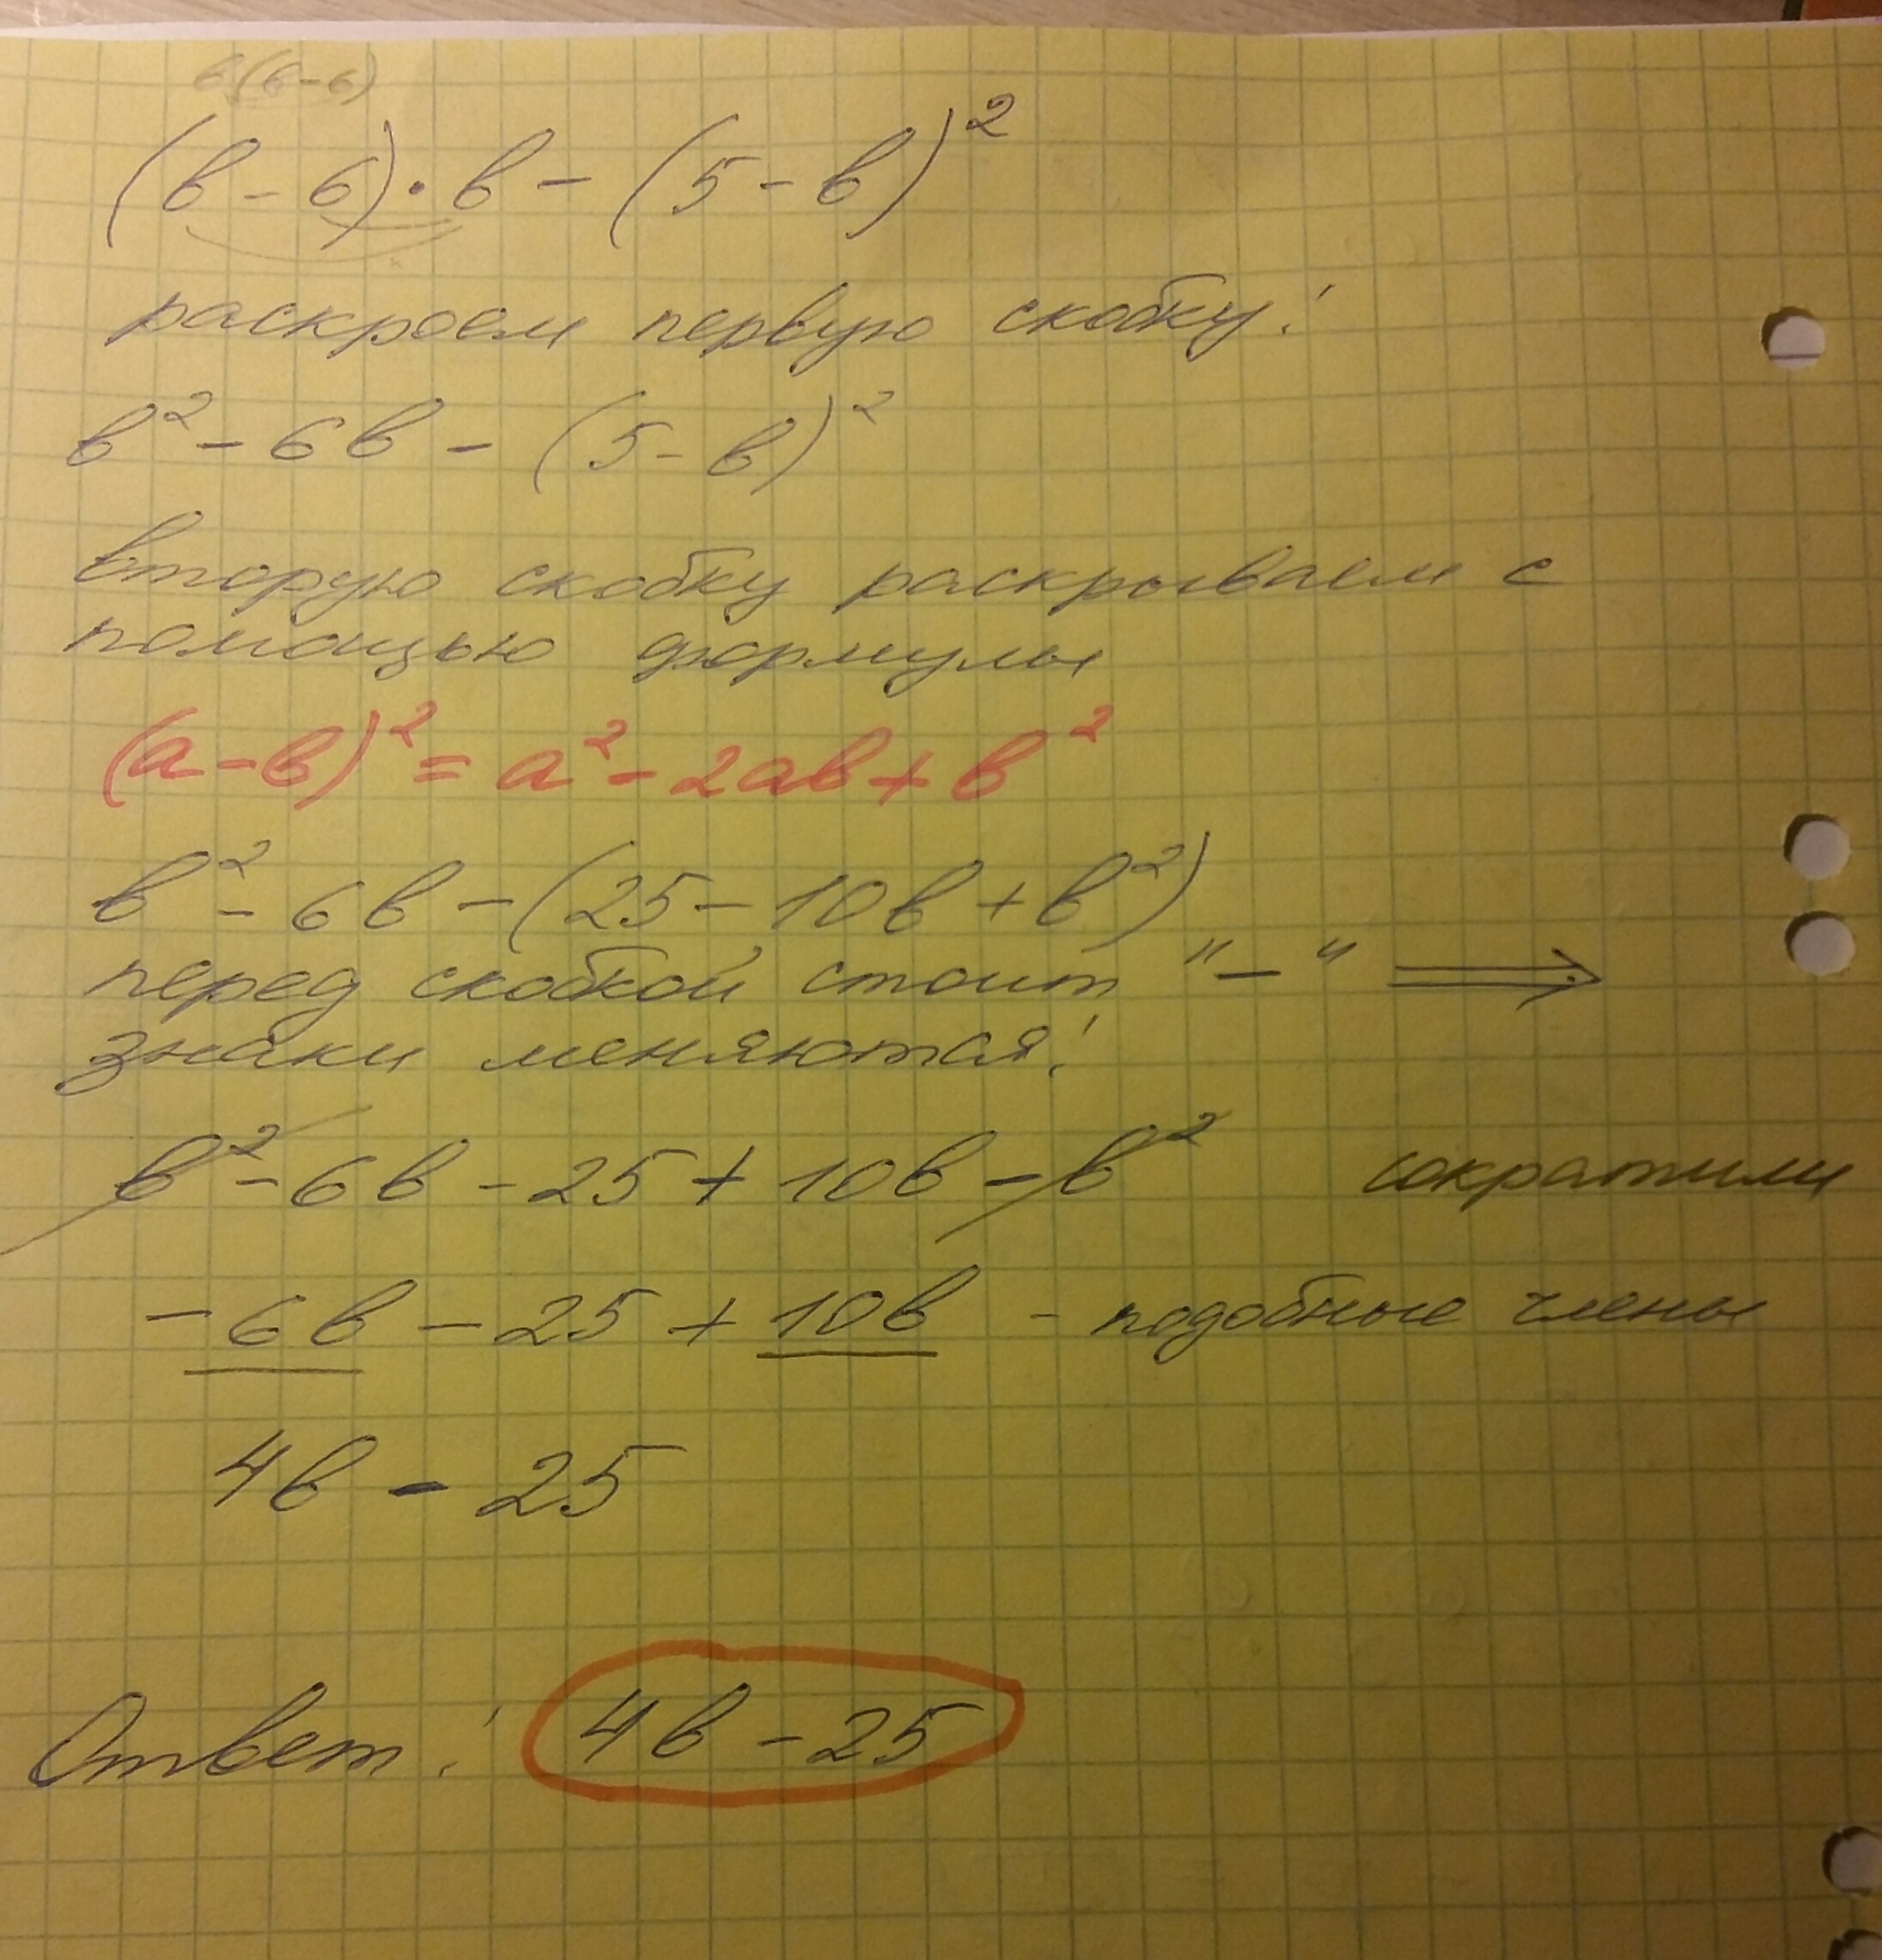 в(в-6)
(в - 6) · в - (5 - в)²
раскроем первую скобку:
в² - 6в - (5 - в)²
вторую скобку раскрываем с
помощью формулы
(а - в)² = а² - 2ав + в²
в² - 6в - (25 - 10в + в²)
перед скобкой стоит "-" ⟹
знаки меняются:
в² - 6в - 25 + 10в - в² сократили
- 6в - 25 + 10в - подобные члены
4в - 25
Ответ: 4в - 25